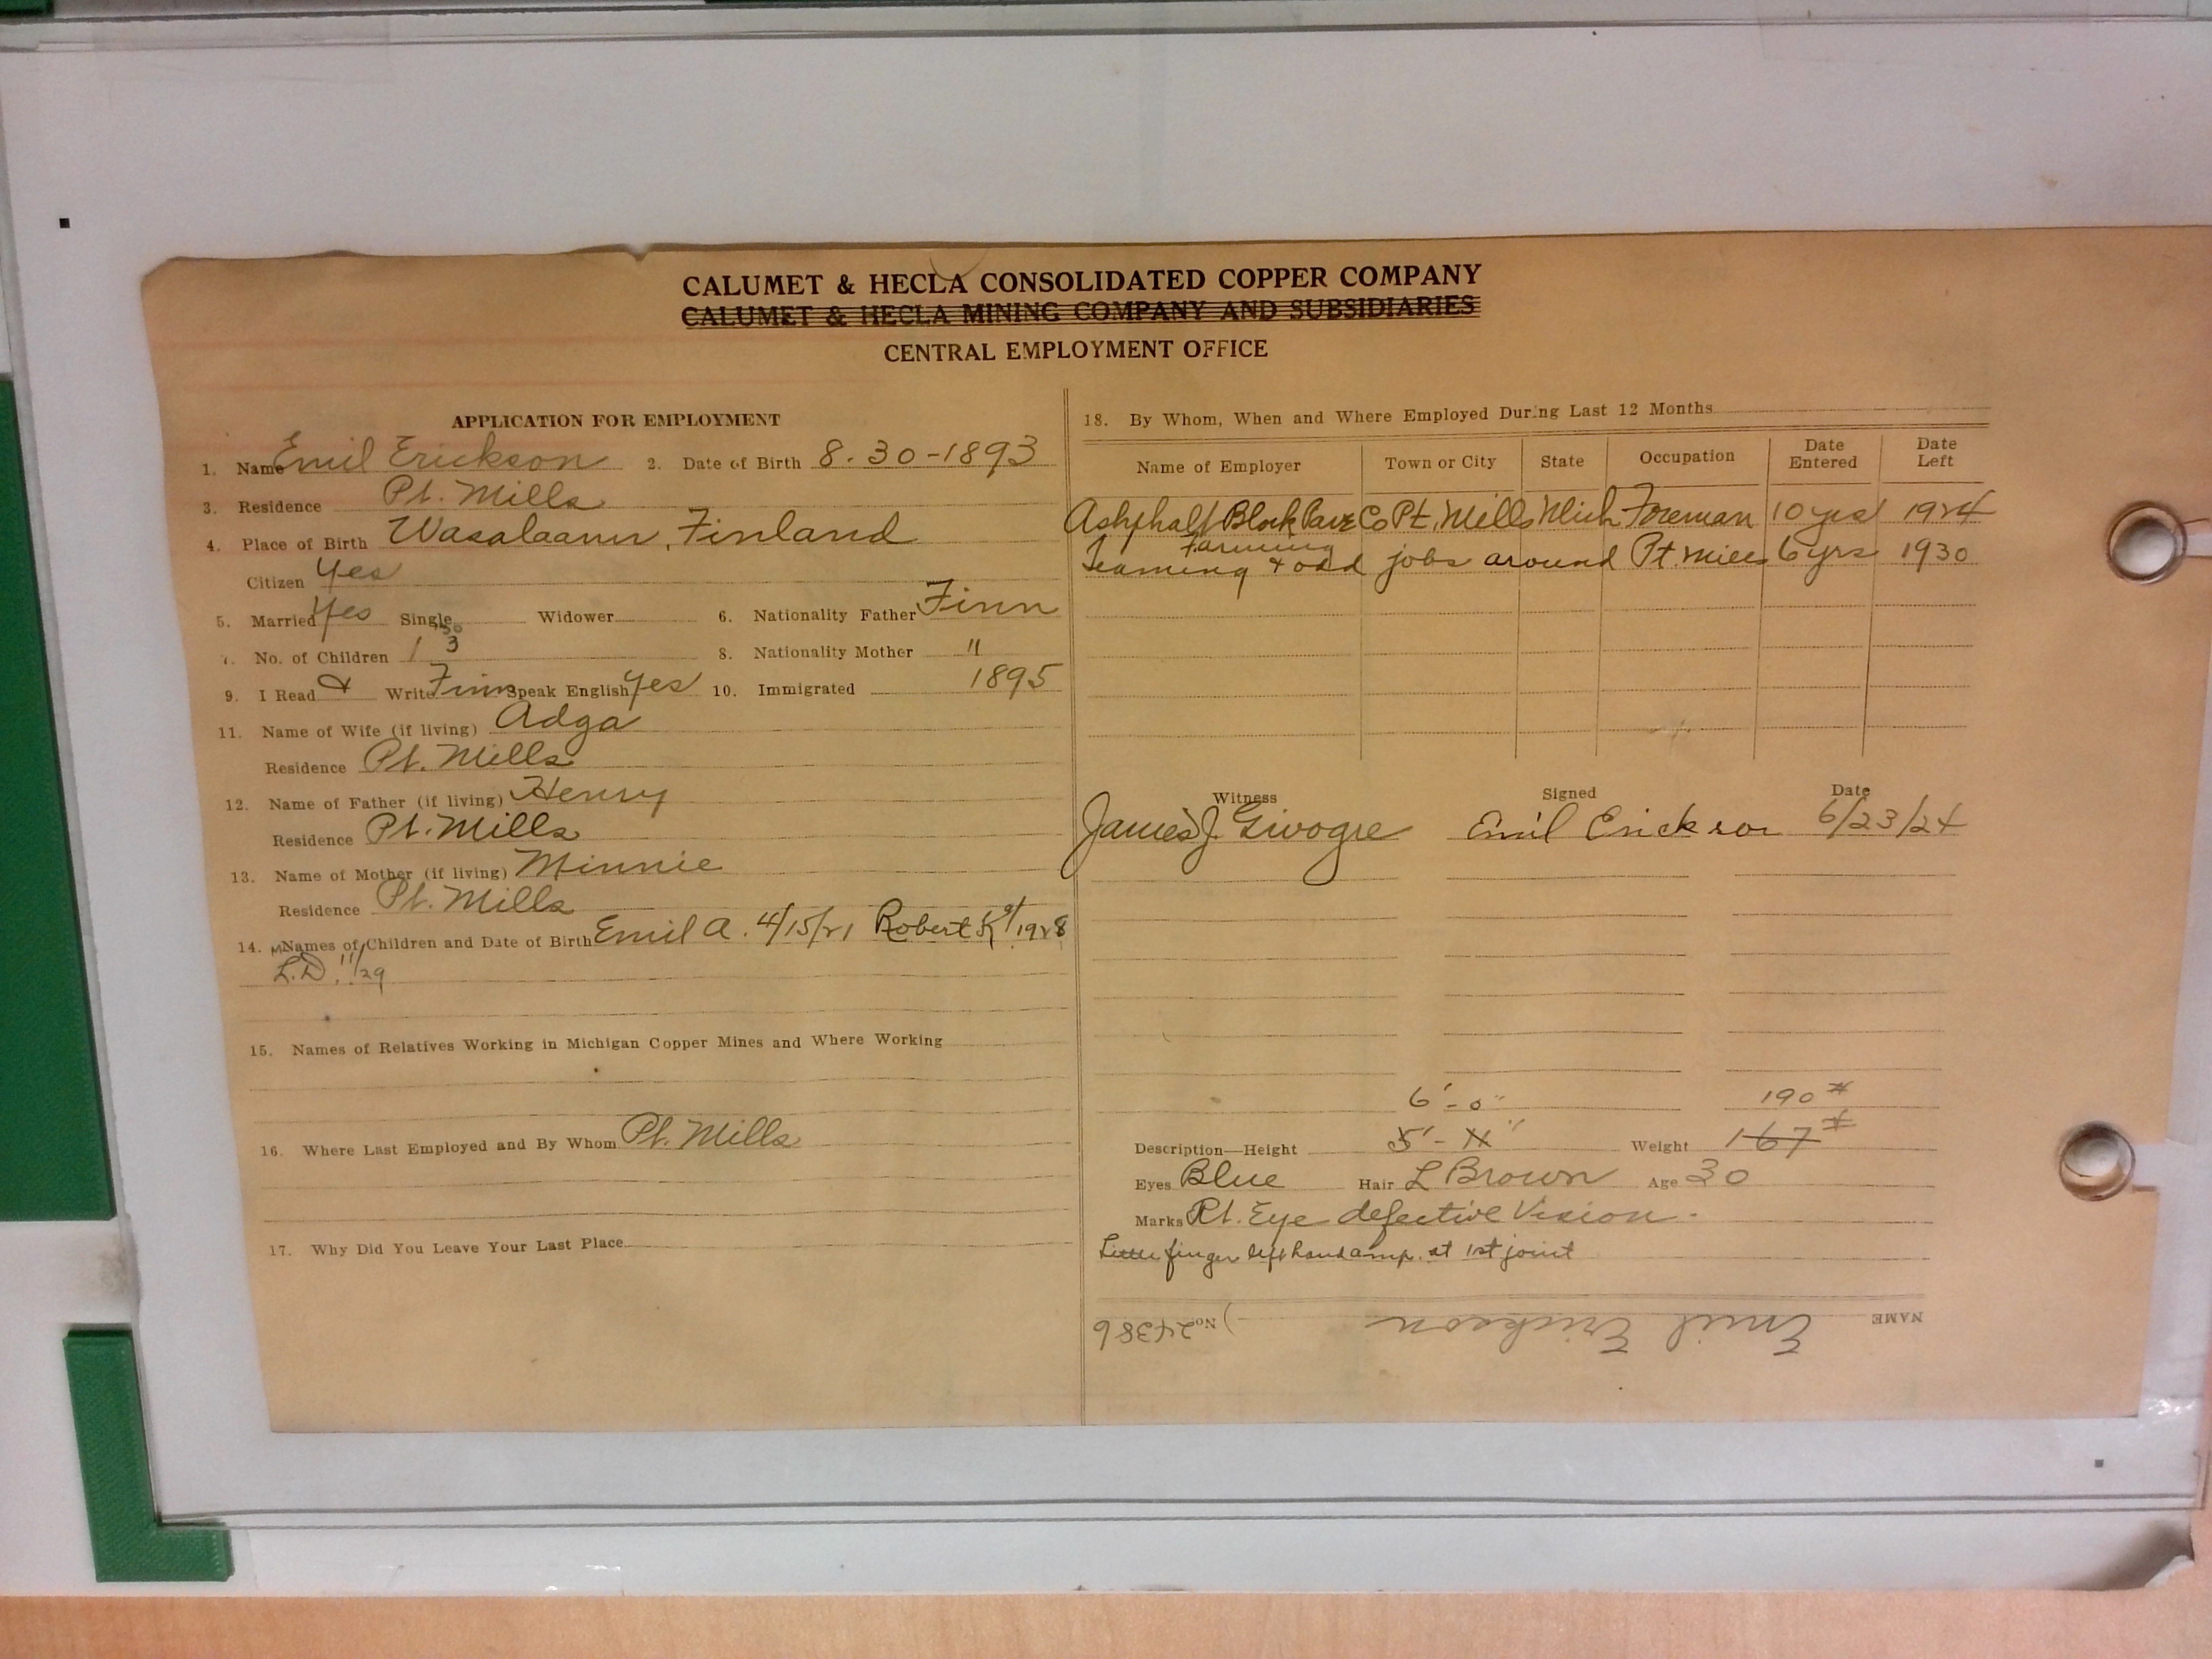 CALUMET & HECLA CONSOLIDATED COPPER COMPANY
CALUMET & HECLA MINING COMPANY AND SUBSIDIARIES
CENTRAL EMPLOYMENT OFFICE
APPLICATION FOR EMPLOYMENT
1. Name Emil Erickson 2. Date of Birth 8-30-1893
3. Residence Pt. Mills
4. Place of Birth Wasalaanir, Finland
Citizen Yes
5. Married Yes Single Widower 6. Nationality Father Finn
7. No. of Children 1 3 8. Nationality Mother "
9. I Read & Write Finn Speak English Yes 10. Immigrated 1895
11. Name of Wife (if living) Adga
Residence Pt. Mills
12. Name of Father (if living) Henry
Residence Pt. Mills
13. Name of Mother (if living) Minnie
Residence Pt. Mills
14. Names of Children and Date of Birth Emil A. 4/15/21 Robert K 9/1928
L.D. 11/29
15. Names of Relatives Working in Michigan Copper Mines and Where Working
16. Where Last Employed and By Whom Pt. Mills
17. Why Did You Leave Your Last Place
18. By Whom, When and Where Employed During Last 12 Months
Name of Employer Town or City State Occupation Date Entered Date Left
Ashphalt Block Pave Co Pt. Mills Mich Foreman 10 yrs 1924
Farming
Teaming & odd jobs around Pt. Mills 6 yrs 1930
Witness Signed Date
James J. Givogre Emil Erickson 6/23/24
6'-0" 190#
Description—Height 5'-11" Weight 167#
Eyes Blue Hair L Brown Age 30
Marks Rt. Eye defective Vision.
Little finger left hand amp. at 1st joint
NAME Emil Erickson No. 24386